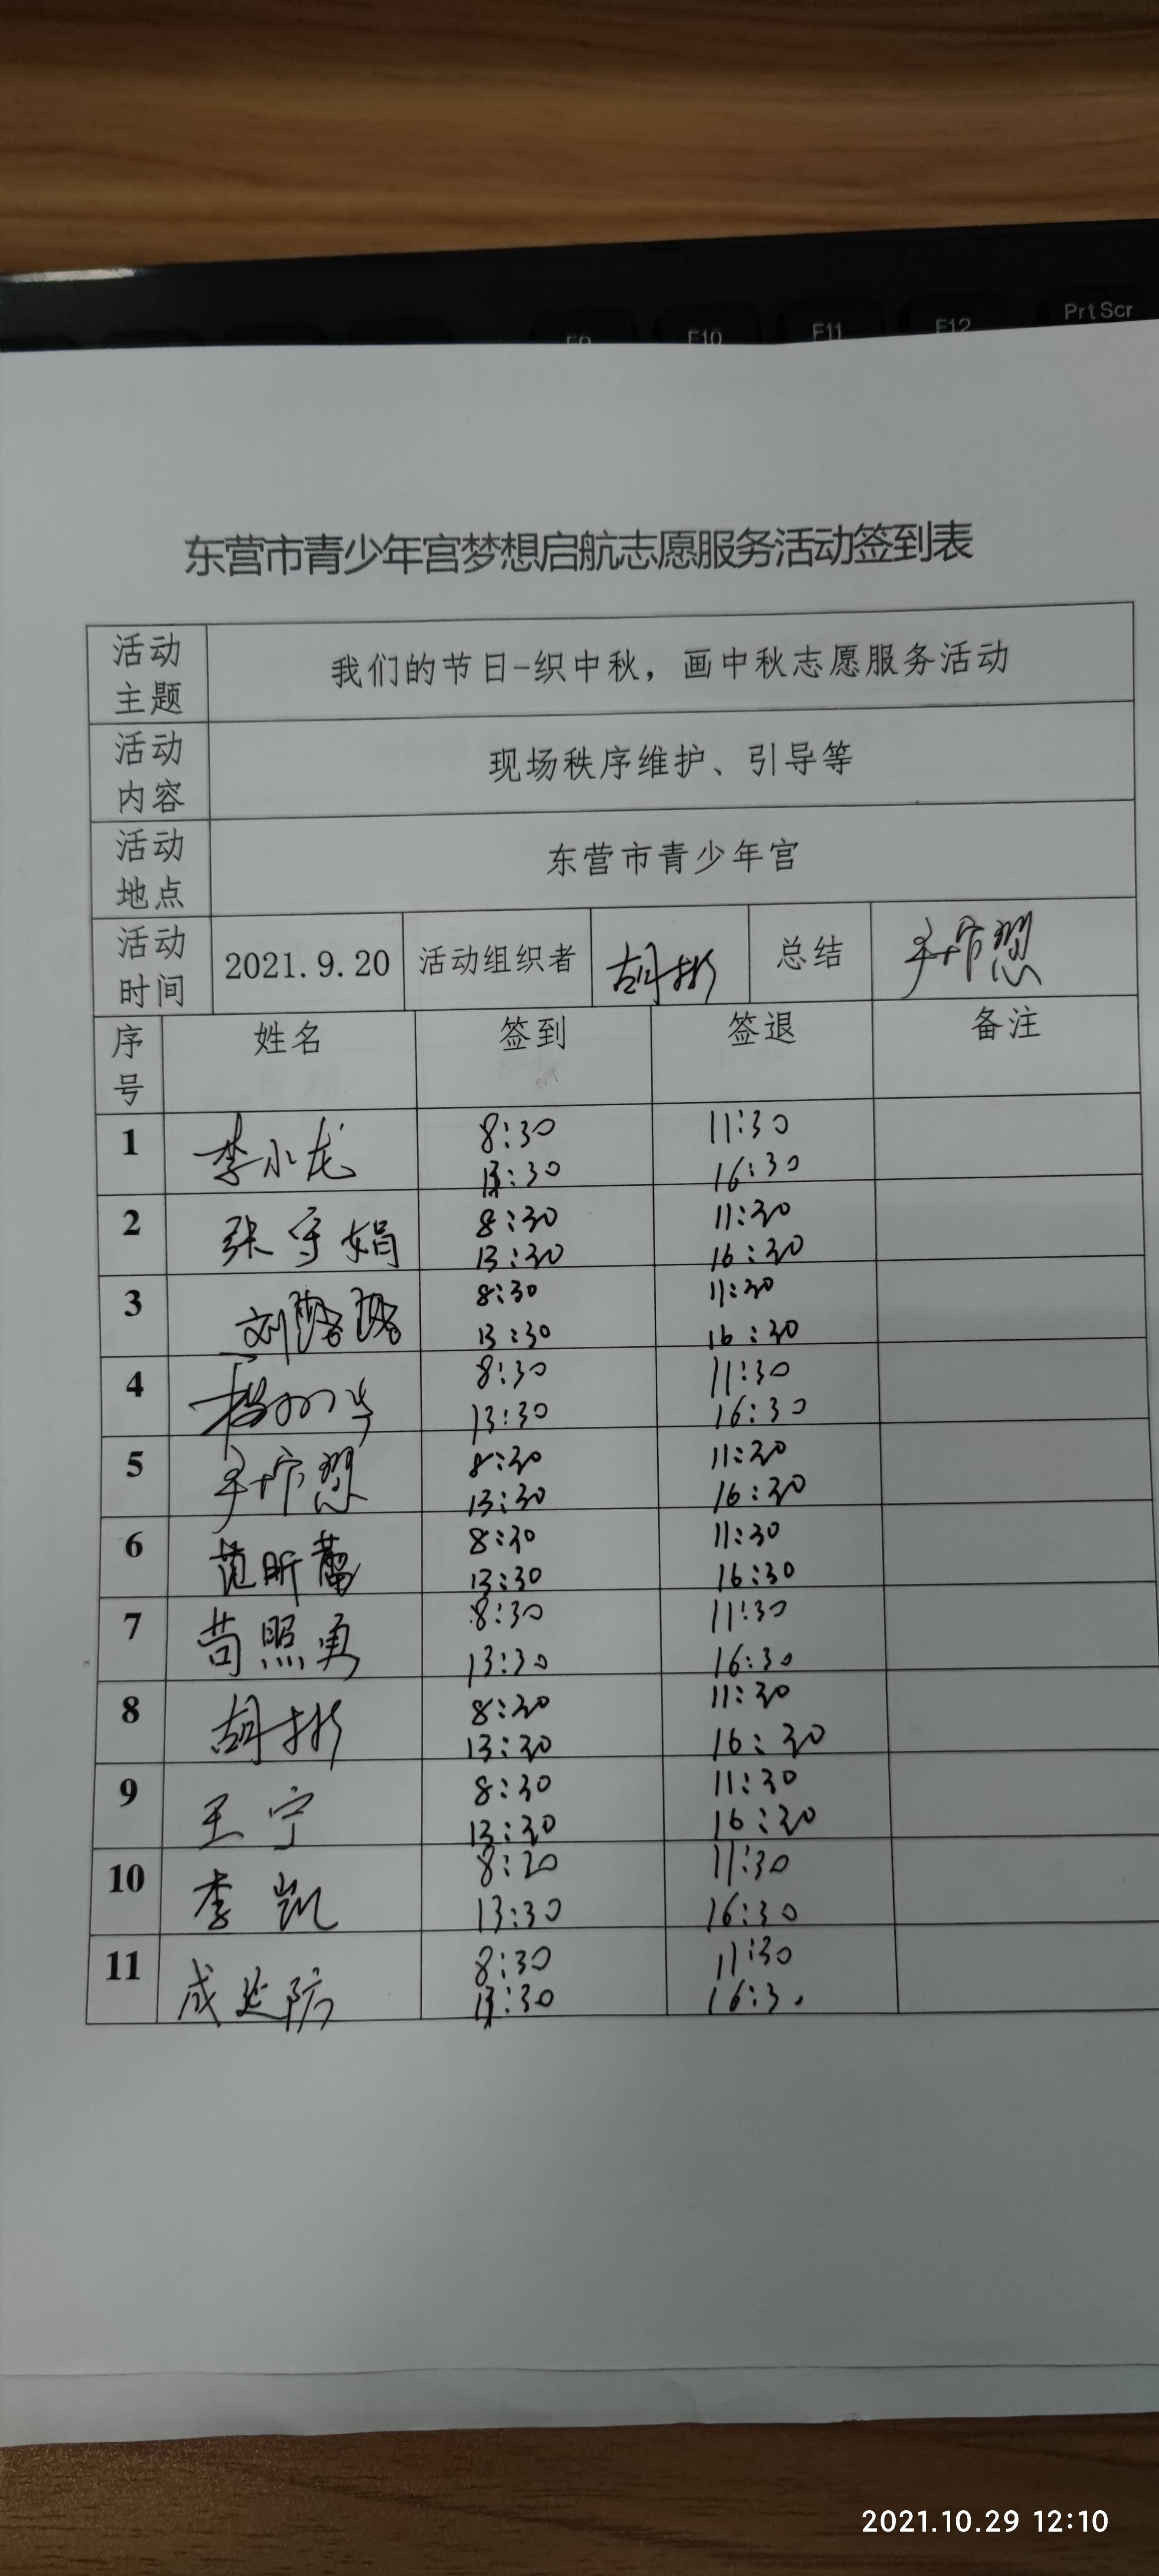 F9 F10 F11 F12 PrtScr
东营市青少年宫梦想启航志愿服务活动签到表
活动
主题
我们的节日-织中秋，画中秋志愿服务活动
活动
内容
现场秩序维护、引导等
活动
地点
东营市青少年宫
活动
时间
2021.9.20 活动组织者 胡彬 总结
序
号
姓名 签到 签退 备注
1 李小龙 8:30 11:30
13:30 16:30
2 张守娟 8:30 11:30
13:30 16:30
3 刘璐璐 8:30 11:30
13:30 16:30
4 8:30 11:30
13:30 16:30
5 8:30 11:30
13:30 16:30
6 范昕蕾 8:30 11:30
13:30 16:30
7 苟照勇 8:30 11:30
13:30 16:30
8 胡彬 8:30 11:30
13:30 16:30
9 王宁 8:30 11:30
13:30 16:30
10 李凯 8:20 11:30
13:30 16:30
11 成延防 8:30 11:30
13:30 16:30
2021.10.29 12:10